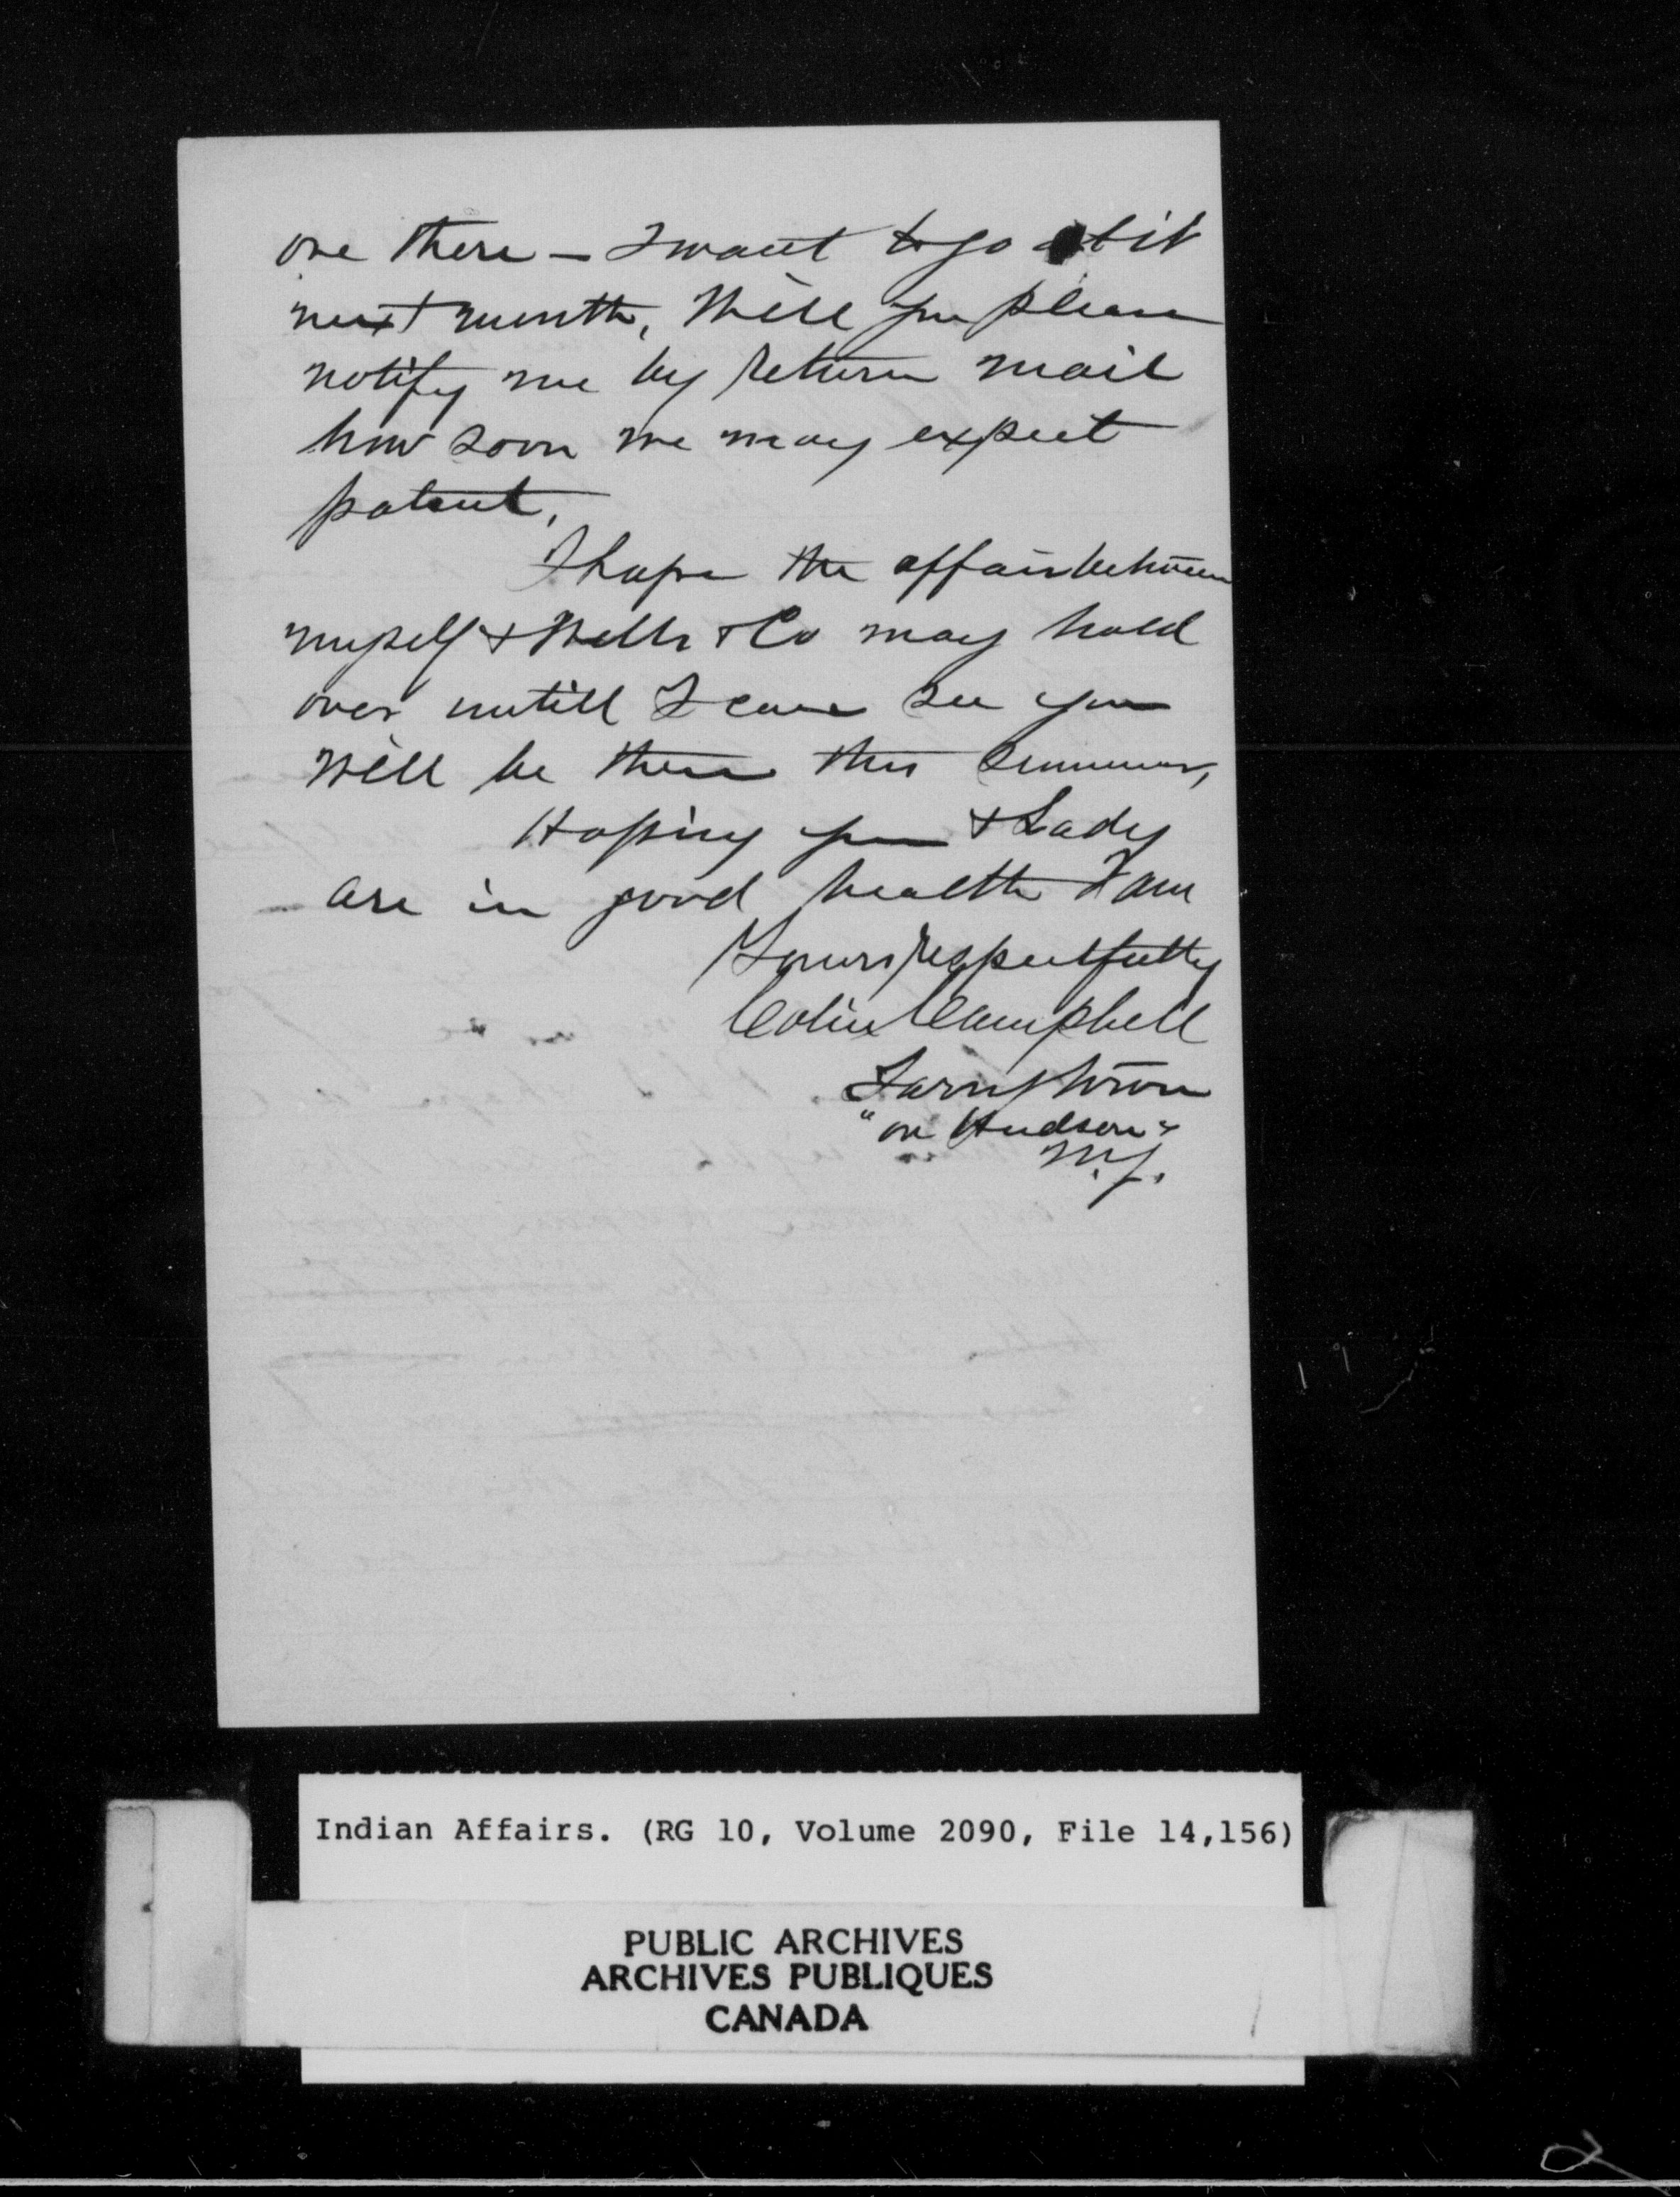 one there — I want to go at it
next month, Will you please
notify me by return mail
how soon we may expect
patent,
I hope the affair between
myself & Wells & Co may hold
over untill I can see you
Will be there this summer,
Hoping you & Lady
are in good health I am
Yours respectfully
Colin Campbell
Tarrytown
"on Hudson"
N.Y.
Indian Affairs. (RG 10, Volume 2090, File 14,156)
PUBLIC ARCHIVES
ARCHIVES PUBLIQUES
CANADA